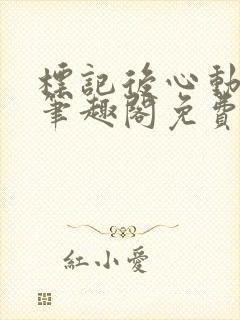 標記後心動
筆趣閣免費
紅小愛